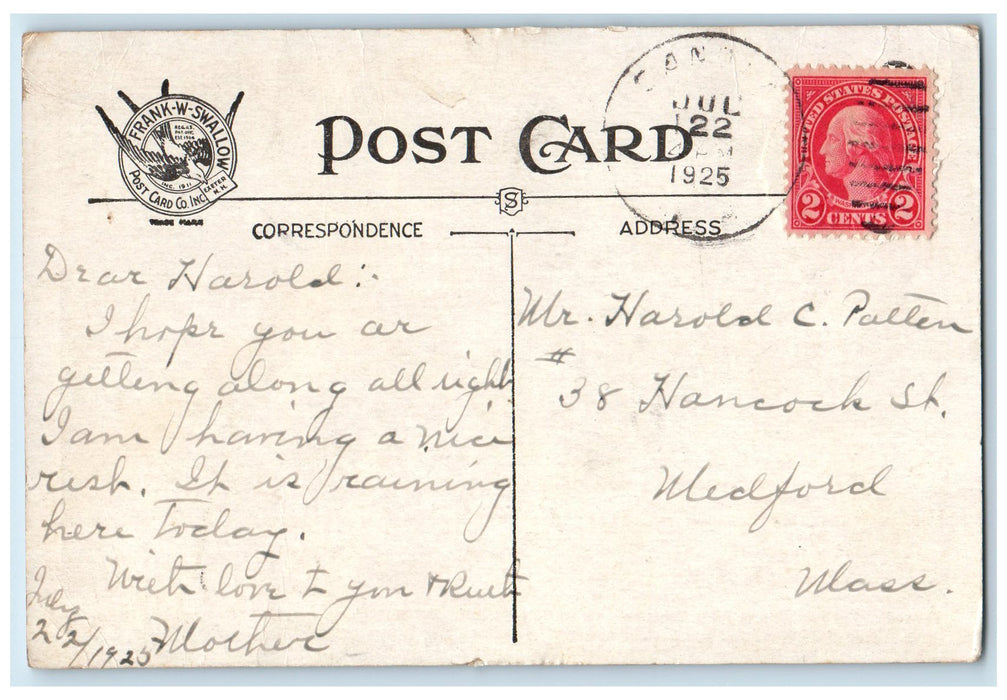 FRANK-W-SWALLOW
REG. U.S.
PAT. OFF.
EST. 1904
INC. 1911
POST CARD CO. INC.
EXETER
N.H.
TRADE MARK
POST CARD
JUL
22
PM
1925
UNITED STATES POSTAGE
WASHINGTON
2 CENTS 2
S
CORRESPONDENCE
ADDRESS
Dear Harold:-
I hope you ar
getting along all right
I am having a nice
rest. It is raining
here Today.
With love to you & Ruth
Mother
July
22/1925
Mr. Harold C. Patten
#
38 Hancock St.
Medford
Mass.